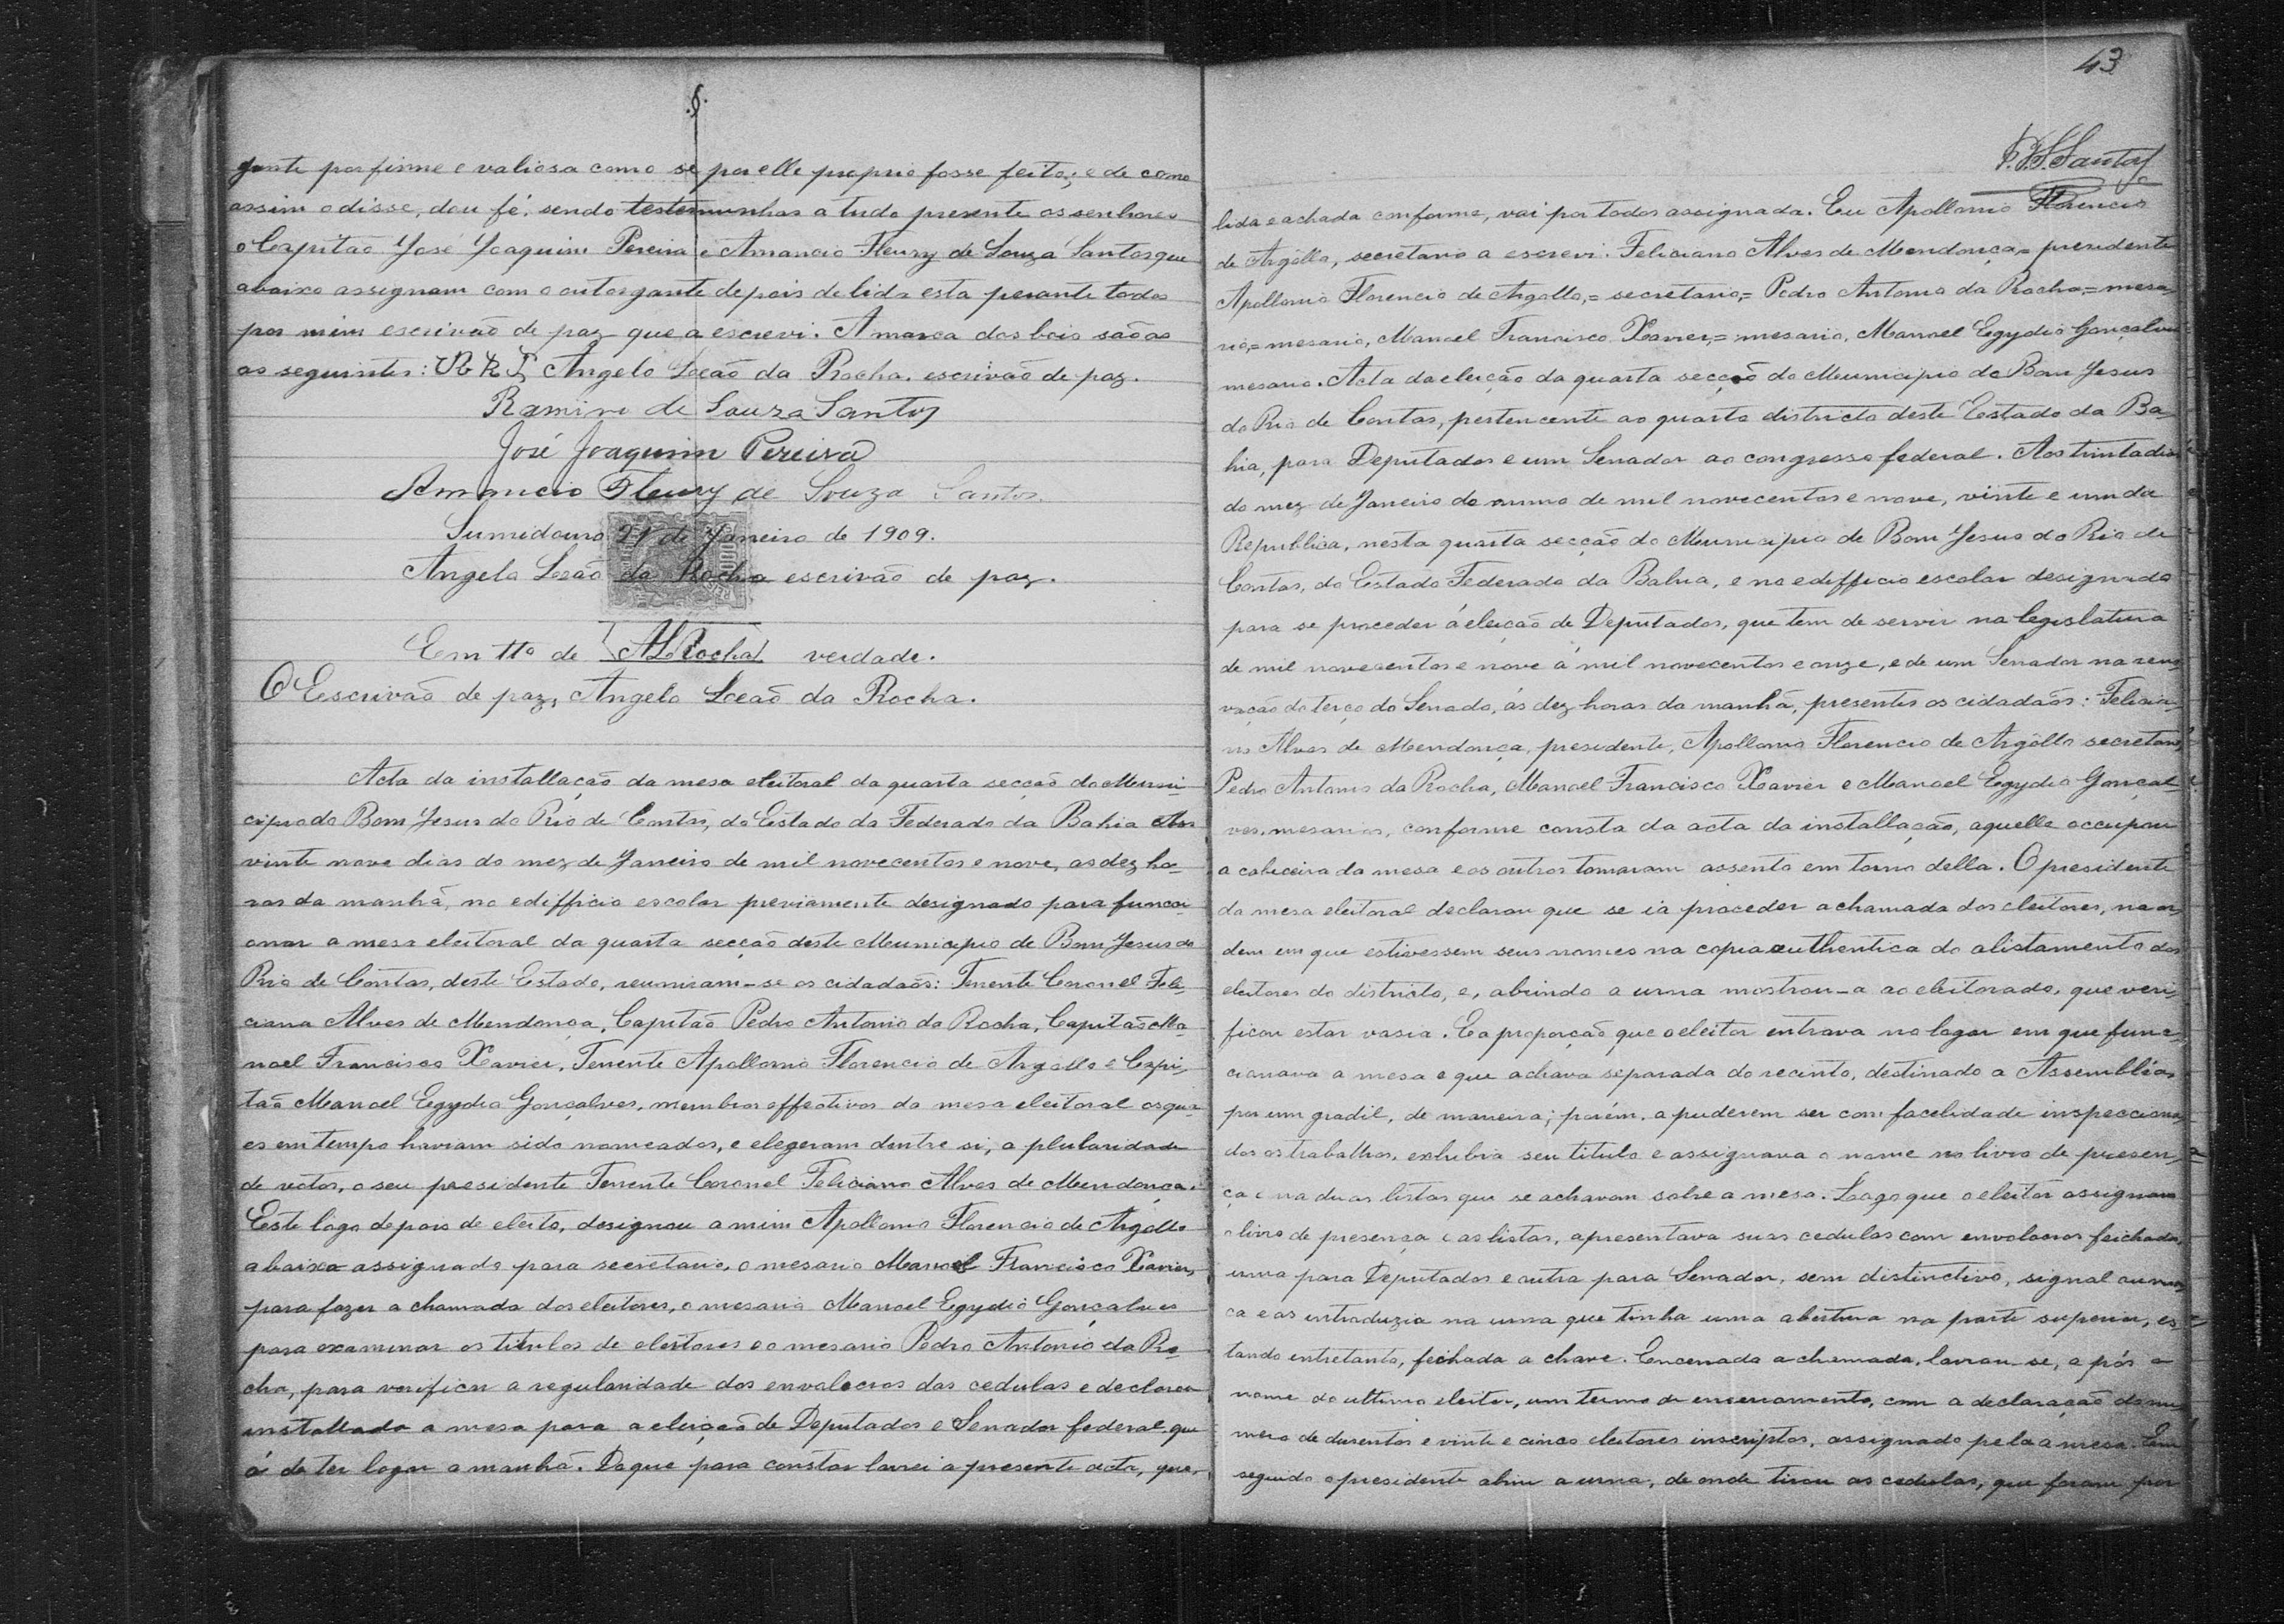 gante por firme e valiosa como se por elle proprio fosse feito; e de como
assim o disse, dou fé, sendo testemunhas a tudo presente os senhores
o Capitão José Joaquim Pereira e Amancio Fleury de Souza Santos que
abaixo assignam com o outorgante depois de lida esta perante todos
por mim escrivão de paz que a escrevi. A marca dos bois são as
as seguintes: Angelo Leão da Rocha. escrivão de paz.
Ramiro de Souza Santos
José Joaquim Pereira
Amancio Fleury de Souza Santos.
Sumidouro 21 de Janeiro de 1909.
Angelo Leão da Rocha escrivão de paz.
Em tto de ALRocha verdade.
O Escrivão de paz, Angelo Leão da Rocha.
Acta da installação da mesa eleitoral da quarta secção do Muni-
cipio do Bom Jesus do Rio de Contas, do Estado da Federado da Bahia Aos
vinte nove dias do mez de Janeiro de mil novecentos e nove, as dez ho-
ras da manhã, no edifficio escolar previamente designado para funcci-
onar a mesa eleitoral da quarta secção deste Municipio de Bom Jesus do
Rio de Contas, deste Estado, reuniram-se os cidadaõs: Tenente Coronel Feli-
ciano Alves de Mendonça, Capitão Pedro Antonio da Rocha, Capitão Ma-
noel Francisco Xavier, Tenente Apollonio Florencio de Argollo e Capi-
taõ Manoel Egydio Gonçalves, membros effectivos da mesa eleitoral os qua-
es em tempo haviam sido nomeados, e elegeram dentre si, a plularidade
de votos, o seu presidente Tenente Coronel Feliciano Alves de Mendonça.
Este logo depois de eleito, designou a mim Apollonio Florencio de Argollo
abaixo assignado para secretario, o mesario Manoel Francisco Xavier,
para fazer a chamada dos eleitores, o mesario Manoel Egydio Gonçalves
para examinar os titulos de eleitores e o mesario Pedro Antonio da Ro-
cha, para verificar a regularidade dos envolocros das cedulas e declarou
installada a mesa para a eleição de Deputados e Senador federal que
á de ter logar amanhã. Do que para constar lavrei a presente acta, que,
43
Santos
lida e achada conforme, vai por todos assignada. Eu Apollonio Florencio
de Argôllo, secretario a escrevi. Feliciano Alves de Mendonça,= presidente
Apollonio Florencio de Argollo,= secretario,= Pedro Antonio da Rocha,= mesa-
rio,= mesario, Manoel Francisco Xavier,= mesario, Manoel Egydio Gonçalves
mesario. Acta da eleição da quarta secção do Municipio do Bom Jesus
do Rio de Contas, pertencente ao quarto districto deste Estado da Ba-
hia, para Deputados e um Senador ao congresso federal. Aos trinta dias
do mez de Janeiro do anno de mil novecentos e nove, vinte e um da
Republica, nesta quarta secção do Municipio de Bom Jesus do Rio de
Contas, do Estado Federado da Bahia, e no edifficio escolar designado
para se proceder á eleição de Deputados, que tem de servir na legislatura
de mil novecentos e nove á mil novecentos e onze, e de um Senador na reno-
vação do terço do Senado, ás dez horas da manhã, presentes os cidadaõs: Felicia-
no Alves de Mendonça, presidente, Apollonio Florencio de Argôllo secretario,
Pedro Antonio da Rocha, Manoel Francisco Xavier e Manoel Egydio Gonçal-
ves, mesarios, conforme consta da acta da installação, aquelle occupou
a cabeceira da mesa e os outros tomaram assento em torno della. O presidente
da mesa eleitoral declarou que se ia proceder a chamada dos eleitores, na or-
dem em que estivessem seus nomes na copia authentica do alistamento dos
eleitores do districto, e, abrindo a urna mostrou-a ao eleitorado, que veri-
ficou estar vasia. E a proporção que o eleitor entrava no logar em que func-
cionava a mesa e que achava separada do recinto, destinado a Assembléa
por um gradil, de maneira; porém, a puderem ser com facelidade inspecciona-
dos os trabalhos, exhibia seu titulo e assignava o nome no livro de presen-
ça e na duas listas que se achavam sobre a mesa. Logo que o eleitor assignava
o livro de presença e as listas, apresentava suas cedulas com envolocros feichados,
uma para Deputados e outra para Senador, sem distinctivo, signal ou mar-
ca e as entroduzia na urna que tinha uma abertura na parte superior, es-
tando entretanto, fechada a chave. Encerrada a chamada, lavrou-se, a pós o
nome do ultimo eleitor, um termo de encerramento, com a declaração do nu-
mero de duzentos e vinte e cinco eleitores inscriptos, assignado pela a mesa. Em
seguida o presidente abriu a urna, de onde tirou as cedulas, que foram por